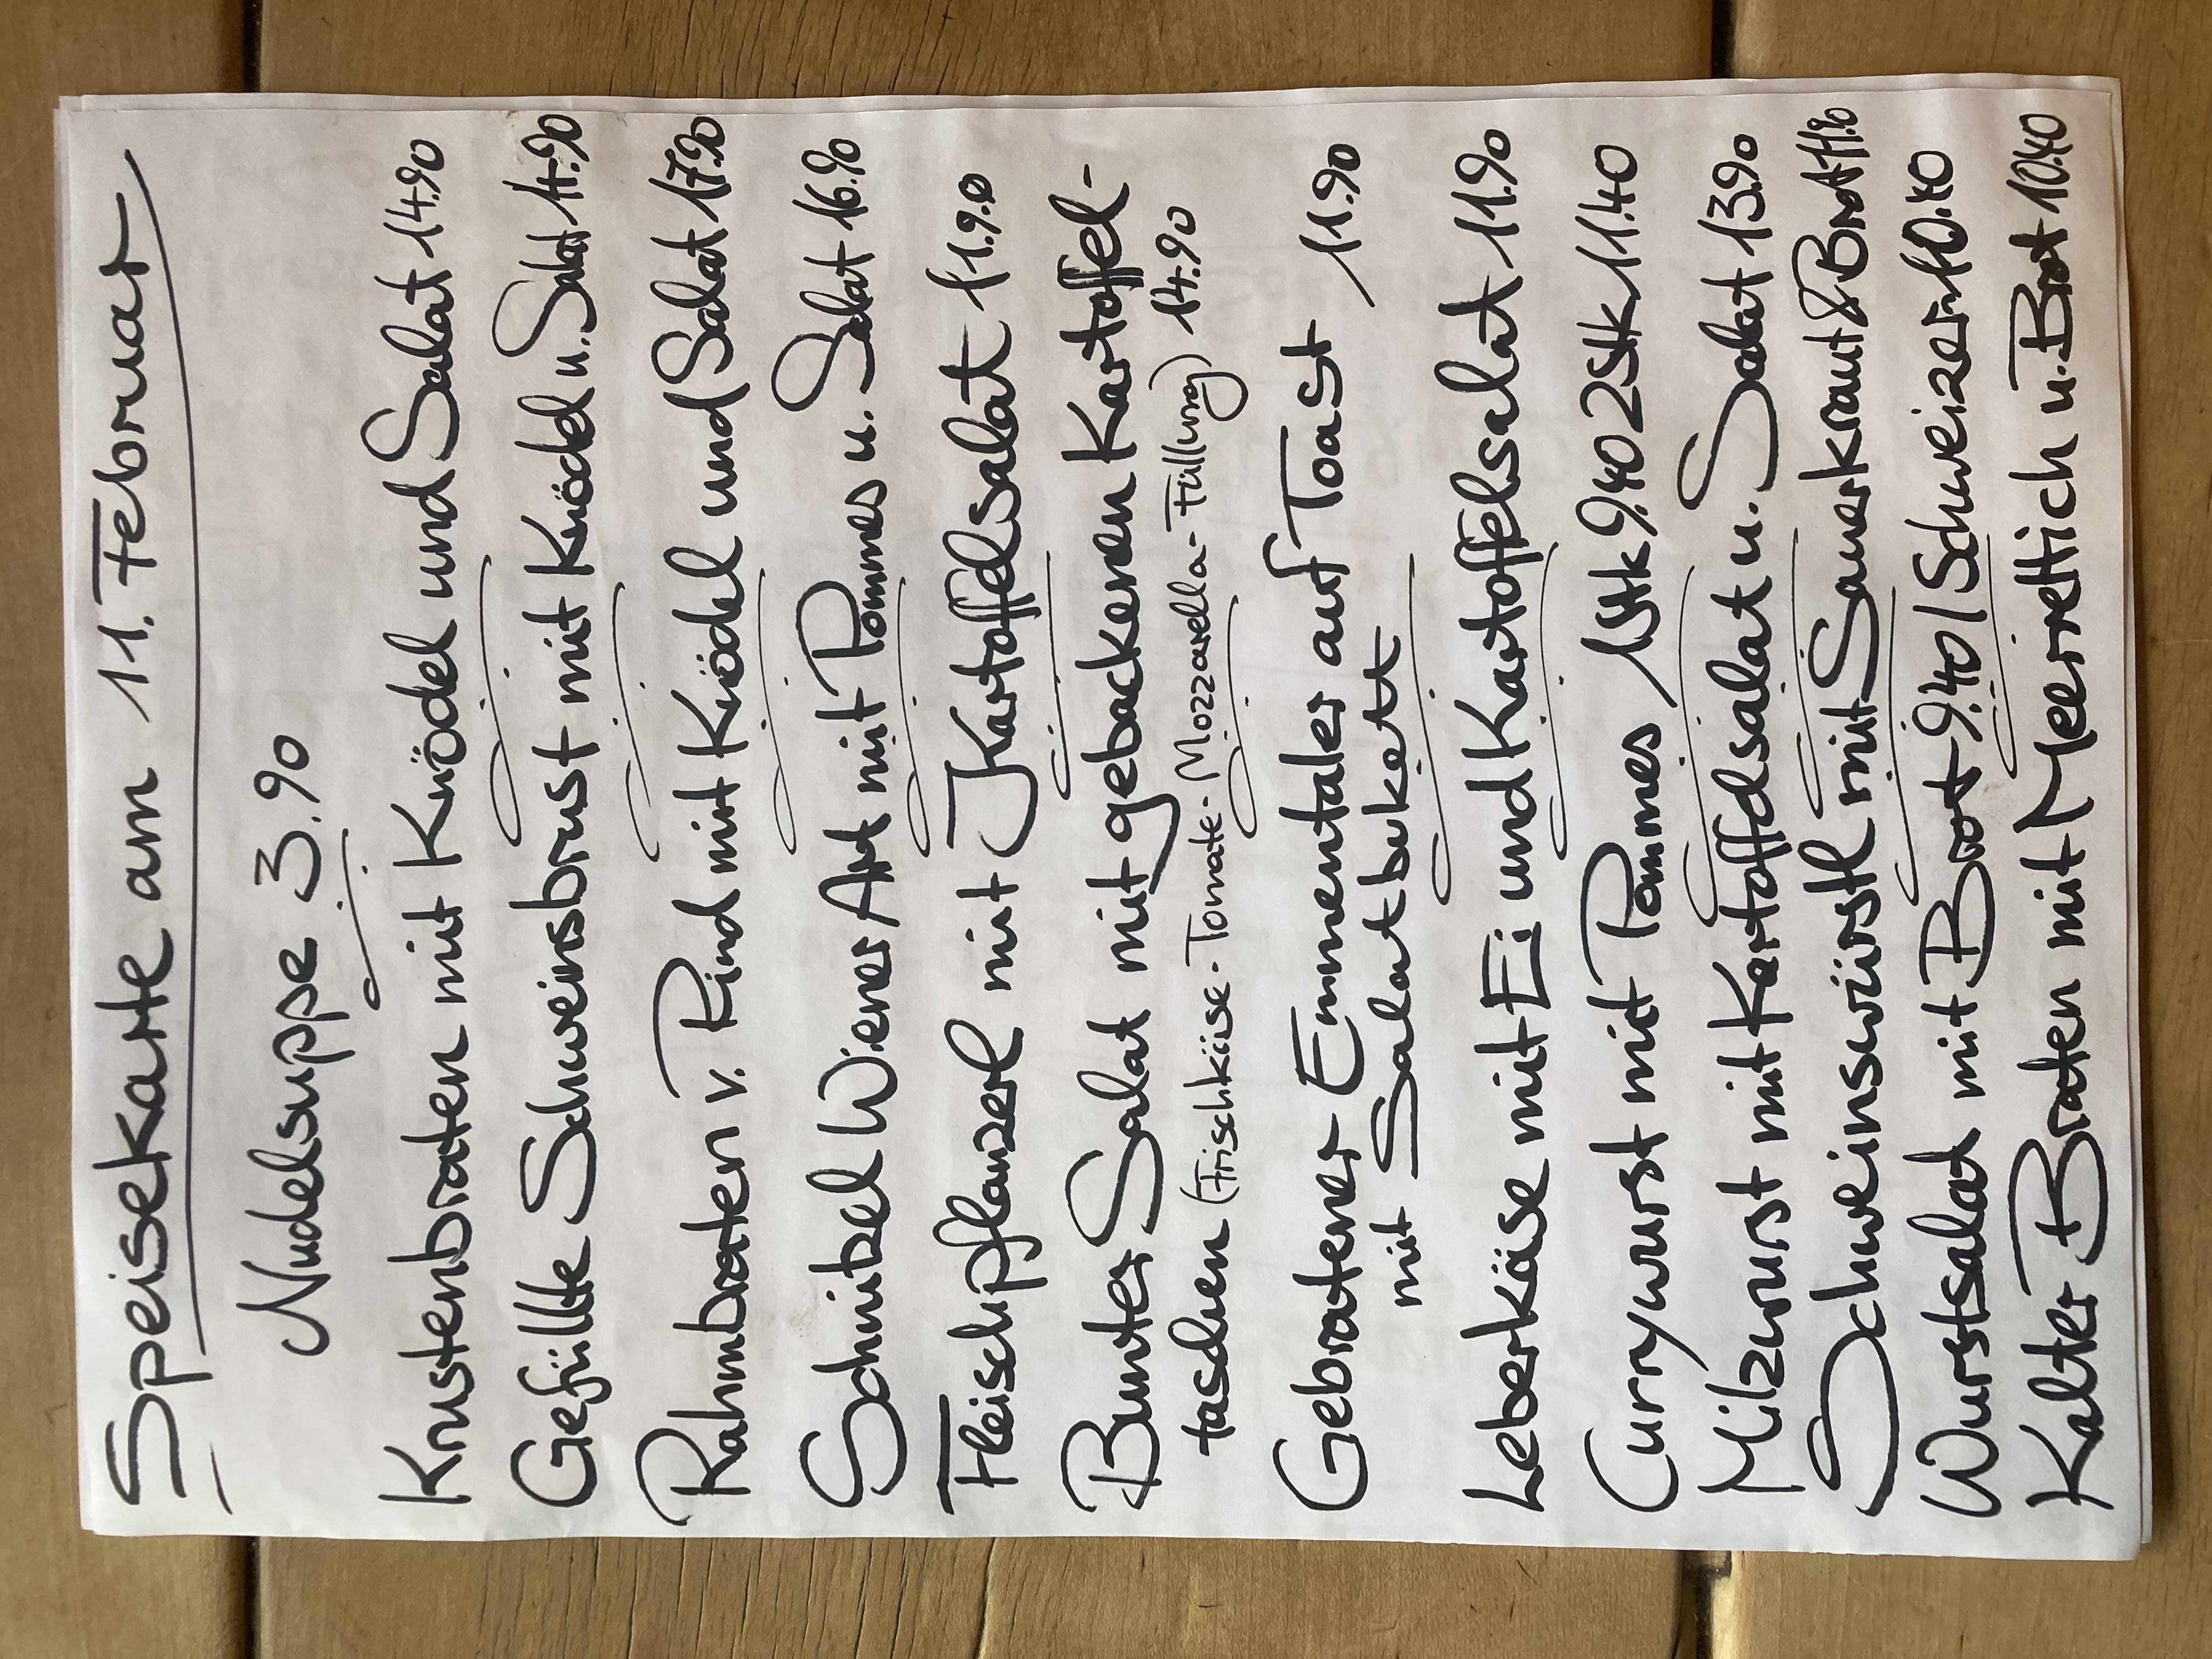 Speisekarte am 11. Februar
Nudelsuppe 3.90
Krustenbraten mit Knödel und Salat 14.90
Gefüllte Schweinsbrust mit Knödel u. Salat 14.90
Rahmbraten v. Rind mit Knödel und Salat 17.90
Schnitzel Wiener Art mit Pommes u. Salat 16.90
Fleischpflanzerl mit Kartoffelsalat 11.90
Bunter Salat mit gebackenen Kartoffel-
taschen (Frischkäse-Tomate-Mozzarella-Füllung) 14.90
Gebratener Emmentaler auf Toast 11.90
mit Salatbukett
Leberkäse mit Ei und Kartoffelsalat 11.90
Currywurst mit Pommes 1Stk 9.40 2Stk 11.40
Milzwurst mit Kartoffelsalat u. Salat 13.90
Schweinswürstl mit Sauerkraut & Brot 11.90
Wurstsalat mit Brot 9.40 / Schweizer 10.40
Kalter Braten mit Meerrettich u. Brot 10.40